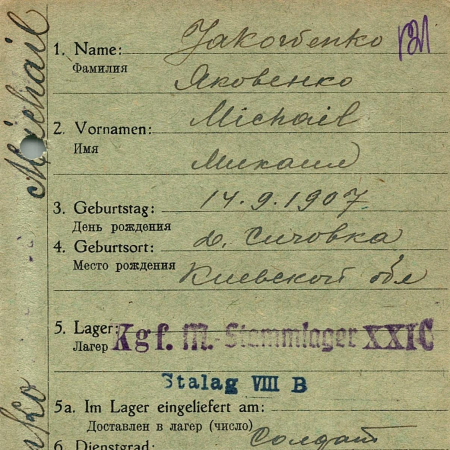 1. Name: Jakowenko 121
Фамилия Яковенко
2. Vornamen: Michail
Имя Михаил
3. Geburtstag: 14.9.1907
День рождения
4. Geburtsort: д. Сичовка
Место рождения Киевской обл
5. Lager: Kgf. M.-Stammlager XXIC
Лагер
Stalag VIII B
5a. Im Lager eingeliefert am:
Доставлен в лагер (число)
6. Dienstgrad: Солдат
Michail
nko